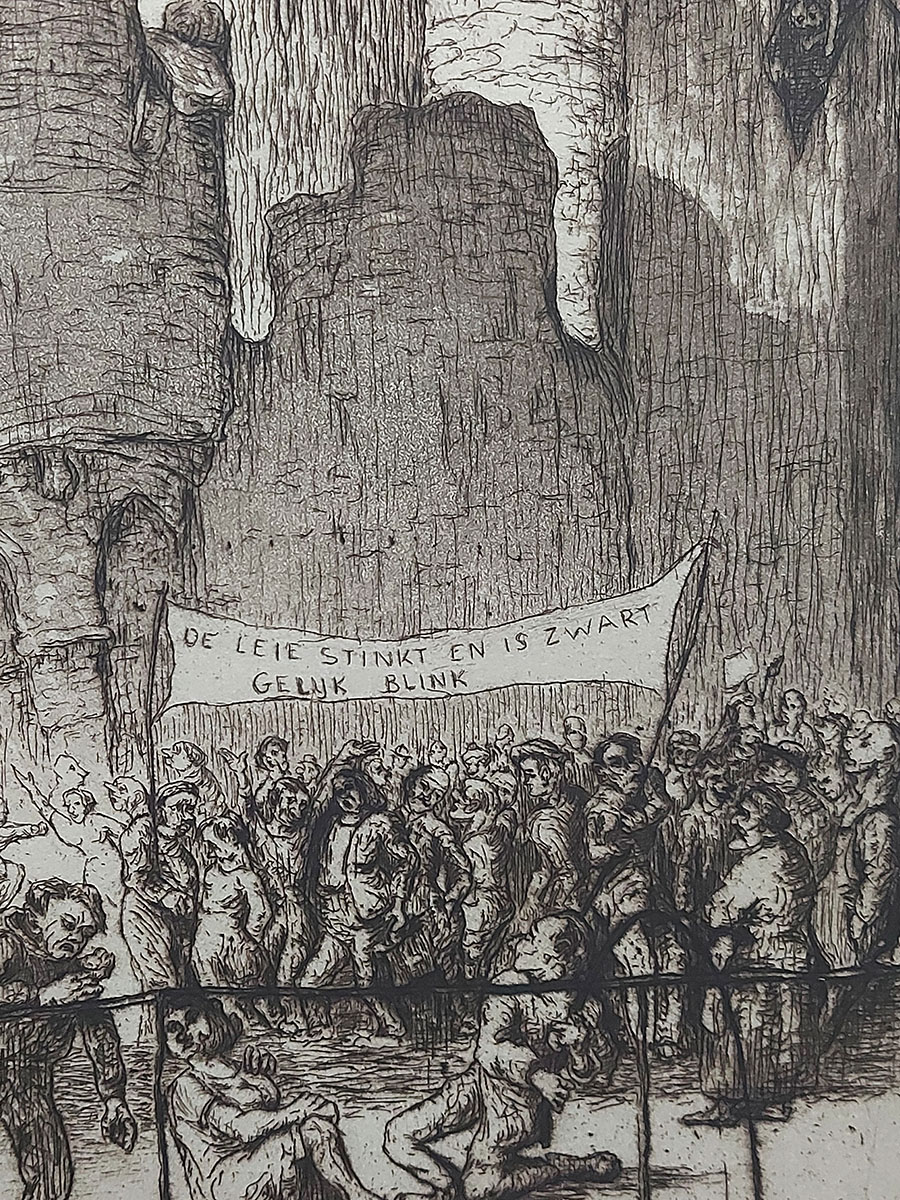 DE LEIE STINKT EN IS ZWART
GELIJK BLINK